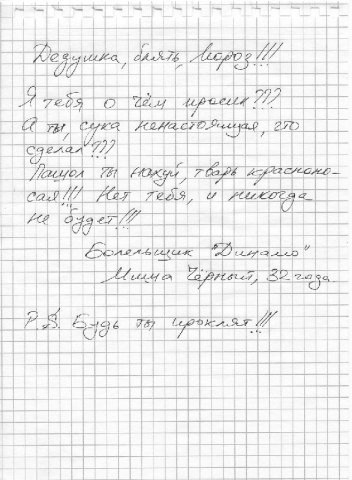 Дедушка, блять, Мороз!!!
Я тебя о чём просил???
А ты, сука ненастоящая, что
сделал???
Пашол ты нахуй, тварь красноно-
сая!!! Нет тебя, и никогда
не будет!!!
Болельщик "Динамо"
Миша Чёрный, 32 года
P.S. Будь ты проклят!!!